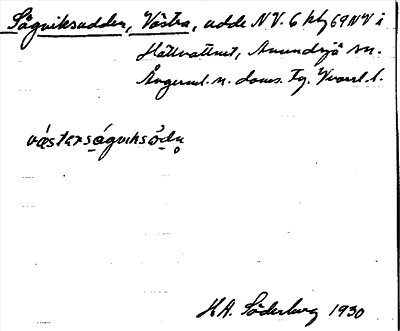 Sågviksudden, Västra, udde NV. 6 kbg 69 NV i
Hällvattnet, Anundsjö sn.
Ångerml. n. doms. fg. Vnorrl. l.
västersågviksŏdn̥
H.A. Söderberg 1930